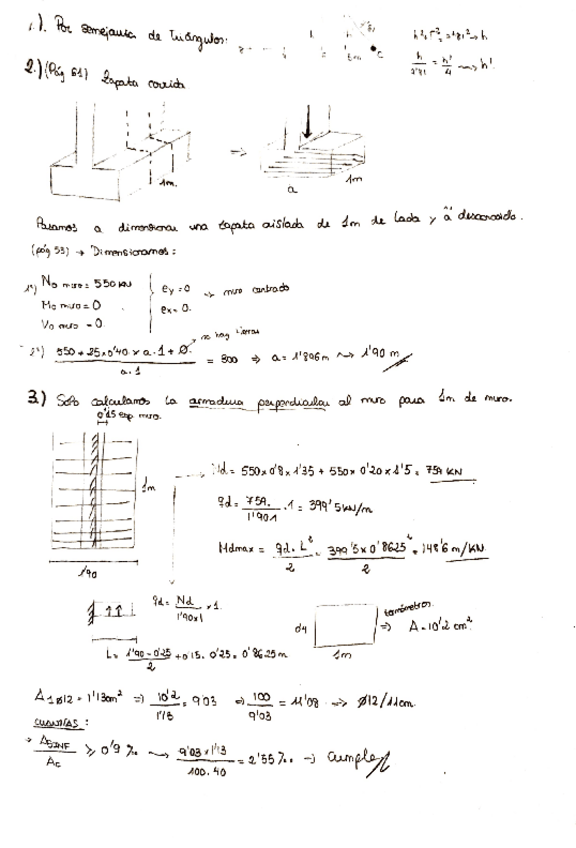 1.). Por semejanza de triángulos:
h
c
2.) (Pág 61) Zapata corrida
1m
⇒
a
1m
Pasamos a dimensionar una zapata aislada de 1m de lado y "a" desconocido.
(pág 53) → Dimensionamos:
1º) No muro = 550 KN
Mo muro = 0
Vo muro = 0
ey = 0
ex = 0
⇒ muro centrado
no hay tierras
2º) (550 + 25 x 0'40 x a · 1 + 0) / (a · 1) = 300 ⇒ a = 1'896m ⇝ 1'90 m
3.) Solo calculamos la armadura perpendicular al muro para 1m de muro.
0'25 esp muro.
1m
1'90
Nd = 550 x 0'8 x 1'35 + 550 x 0'20 x 1'5 = 759 KN
qd = 759 / 1'90·1 · 1 = 399'5 KN/m
Mdmax = qd · L² / 2 = 399'5 x 0'8625² / 2 = 148'6 m/KN
qd = Nd / 1'90x1 x 1
L = (1'90 - 0'25) / 2 + 0'15 · 0'25 = 0'8625 m
0'4
1m
⇒ A = 10'2 cm²
A1Ø12 = 1'13cm² ⇒ 10'2 / 1'13 = 9'03 ⇒ 100 / 9'03 = 11'08 ⇝ Ø12/11cm.
CUANTÍAS:
→ ASINF / Ac ≥ 0'9 ‰ ⇝ 9'03 x 1'13 / 100 · 40 = 2'55 ‰ → Cumple